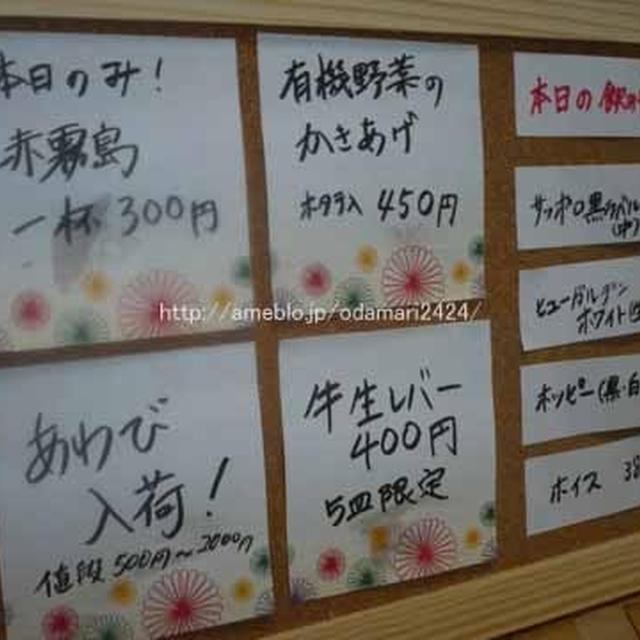 本日のみ!
赤霧島
一杯 300円
有機野菜の
かきあげ
ホタテ入 450円
http://ameblo.jp/odamari2424/
あわび
入荷!
値段 500円~2000円
牛生レバー
400円
5皿限定
本日の飲み
サッポロ黒ラベル
(中)
ヒューガルデン
ホワイト
ホッピー(黒・白
ボイス